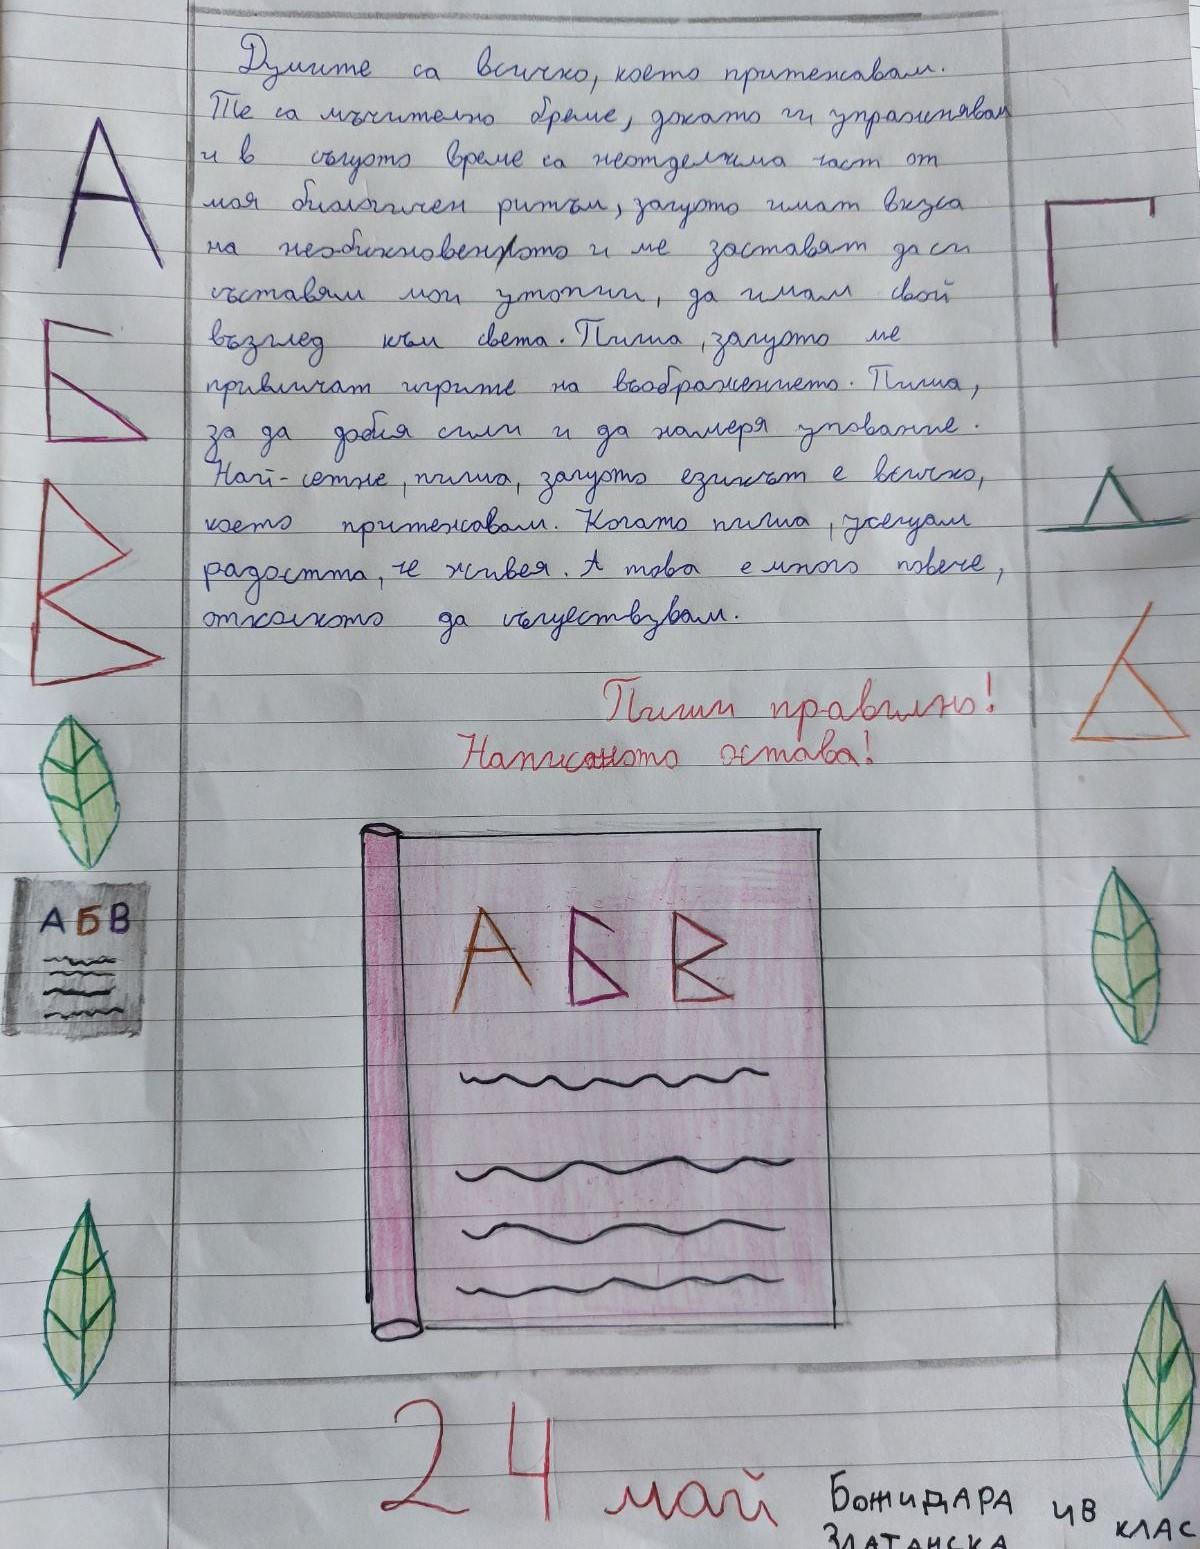 Думите са всичко, което притежавам.
Те са мъчително бреме, докато ги упражнявам
и в същото време са неотделима част от
моя биологичен ритъм, защото имат вкуса
на необикновеното и ме заставят да си
съставям мои утопии, да имам свой
възглед към света. Пиша, защото ме
привличат игрите на въображението. Пиша,
за да добия сили и да намеря упование.
Най-сетне, пиша, защото езикът е всичко,
което притежавам. Когато пиша, усещам
радостта, че живея. А това е много повече,
отколкото да съществувам.
Пиши правилно!
Написаното остава!
А
Б
В
Г
Д
А Б В
А Б В
24 май
БОЖИДАРА
ЗЛАТАНСКА
КЛАС